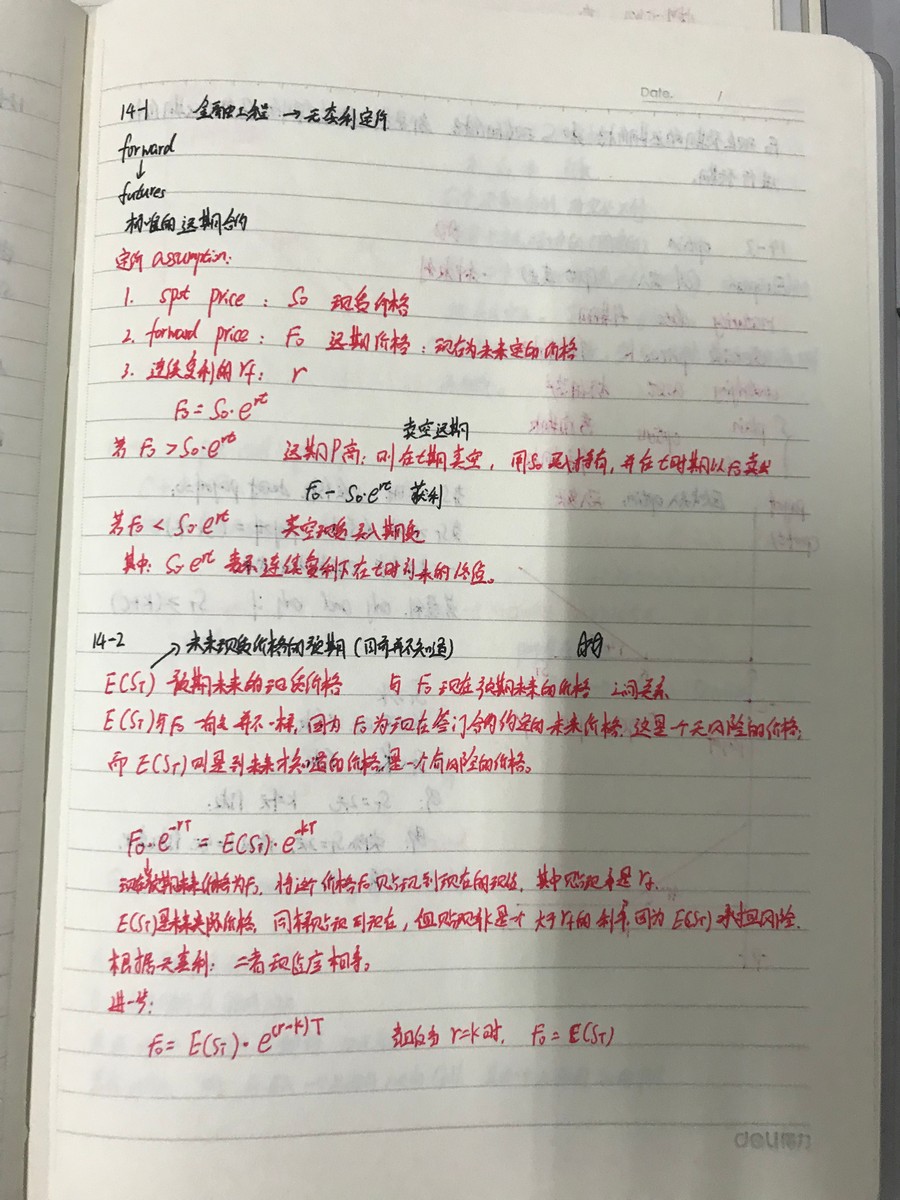 Date. /
14-1 金融工程 → 无套利定价
forward
↓
futures
标准的远期合约
定价 assumption:
1. spot price : S₀ 现货价格
2. forward price : F₀ 远期价格 : 现在为未来定的价格
3. 连续复利的 rf : r
F₀ = S₀·e^rt
卖空远期
若 F₀ > S₀·e^rt 远期P高: 则在t期卖空, 用S₀买入持有, 并在t时期以F₀卖出
F₀ - S₀·e^rt 获利
若 F₀ < S₀·e^rt 卖空现货买入期货
其中: S₀·e^rt 表示连续复利下在t时刻来的终值。
14-2 → 未来现货价格的预期 (因而并不知道)
E(S_T) 预期未来的现货价格 与 F₀ 现在预期未来的价格 之间关系
E(S_T)与F₀ 有点并不一样, 因为 F₀ 为现在签订合约约定的未来价格, 这是一个无风险的价格;
而 E(S_T) 则是到未来才知道的价格, 是一个有风险的价格。
F₀·e^-rT = E(S_T)·e^-kT
现在预期未来价格为F₀, 将这个价格F₀贴现到现在的现值, 其中贴现率是 rf.
E(S_T)是未来的价格, 同样贴现到现在, 但贴现率是个大于rf的利率, 因为E(S_T)承担风险.
根据无套利: 二者现值应相等。
进一步:
F₀ = E(S_T)·e^(r-k)T 当且仅当 r=k时, F₀ = E(S_T)
deli得力